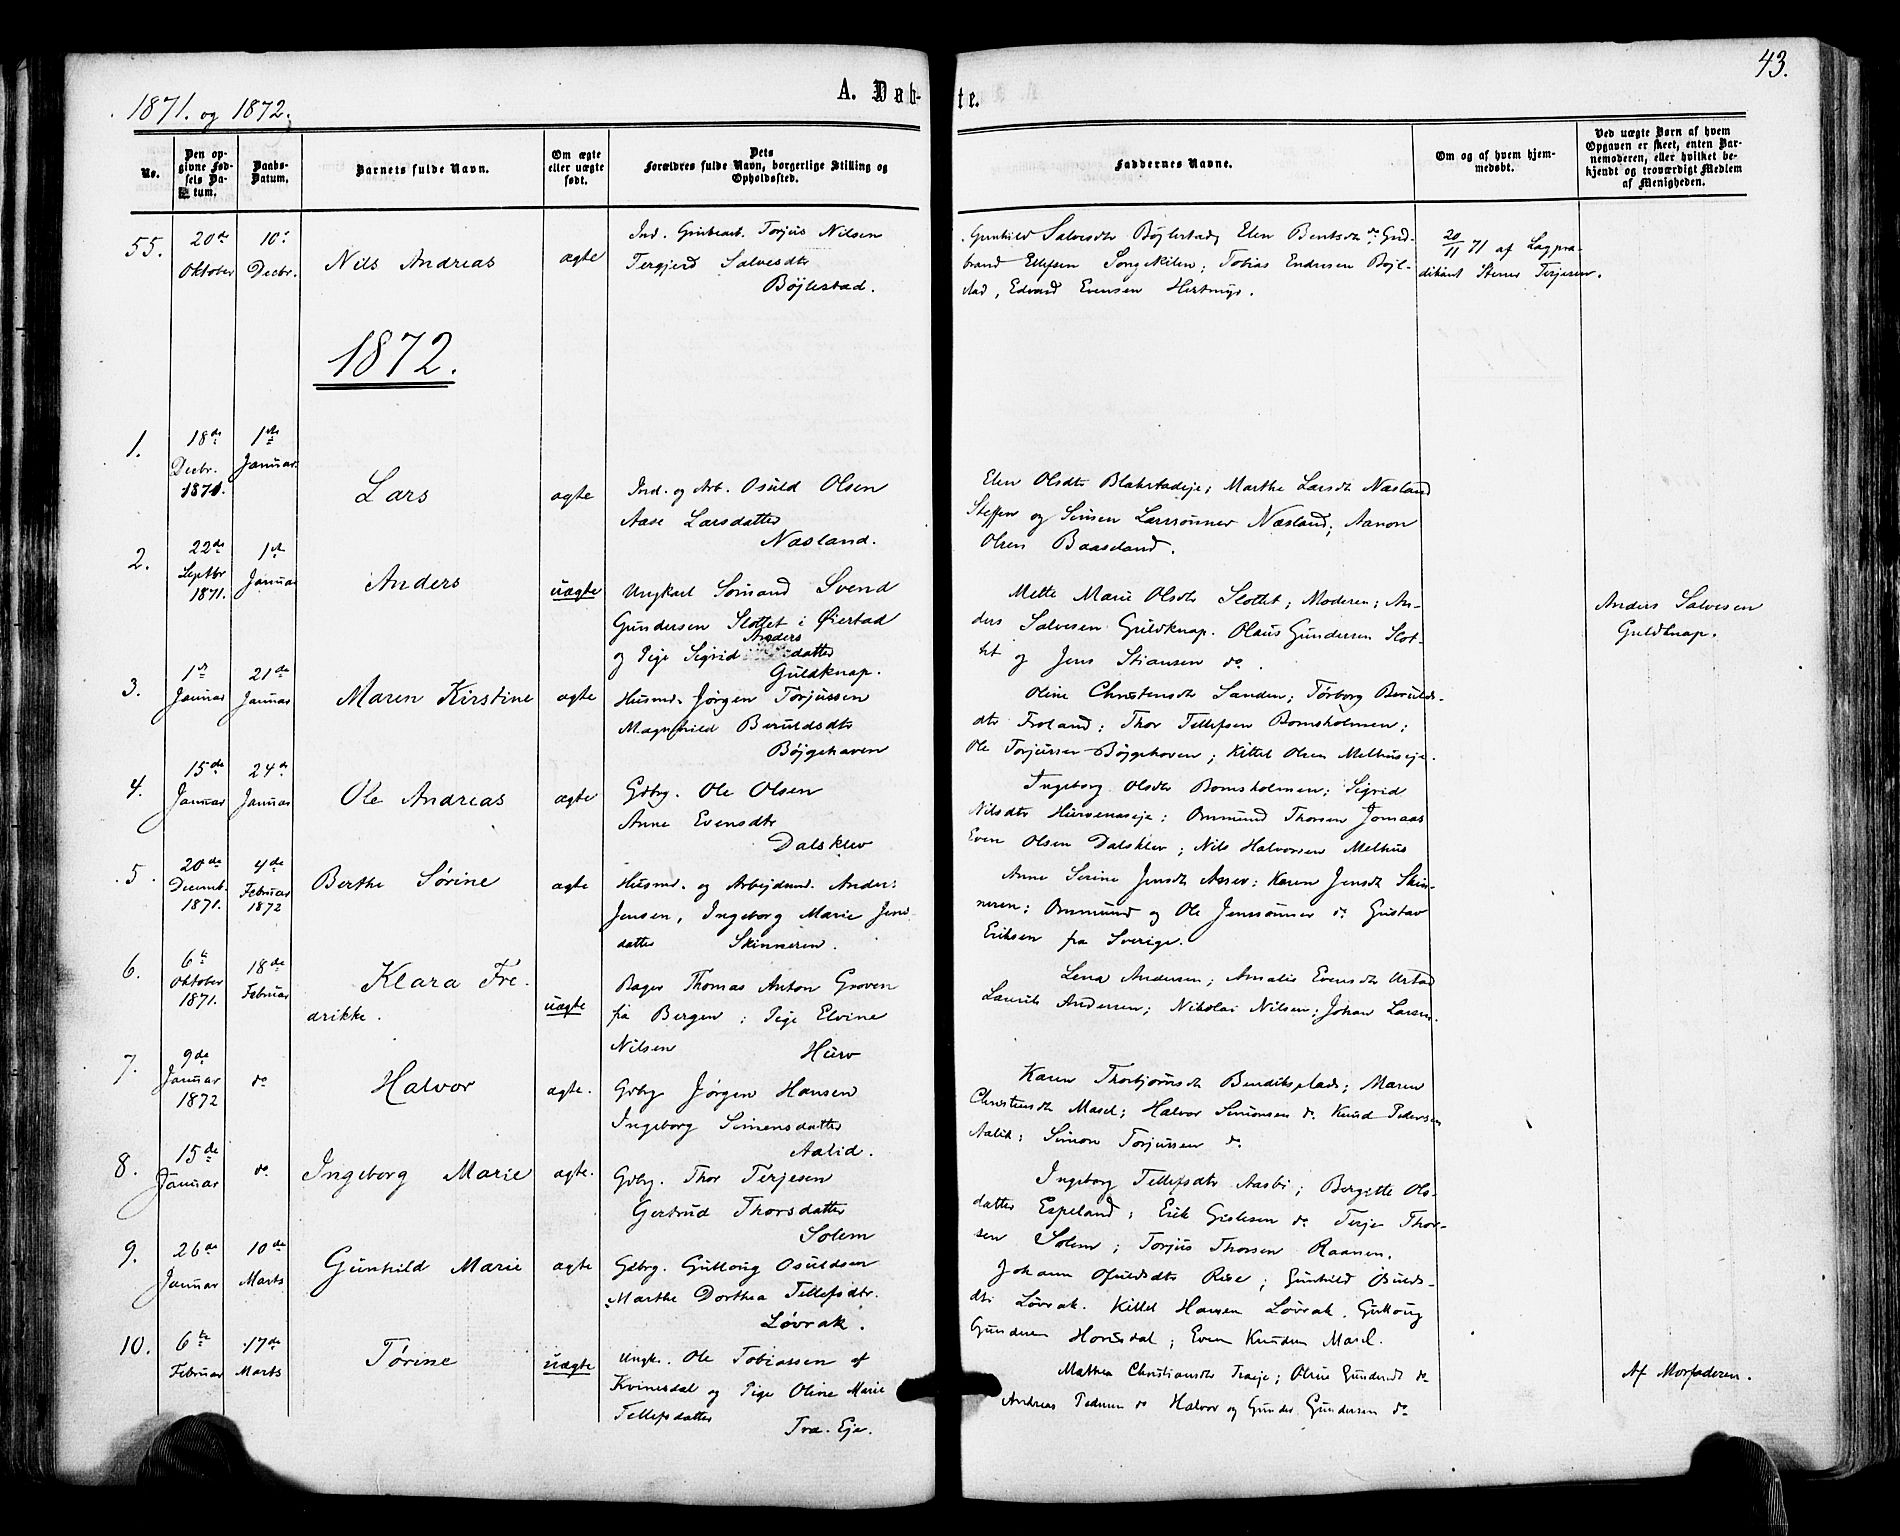 43.
1871. og 1872.
A. Døb-te.
No.
Den op-
givne Fød-
sels Da-
tum.
Daabs-
Datum.
Barnets fulde Navn.
Om ægte
eller uægte
født.
Dets
Forældres fulde Navn, borgerlige Stilling og
Opholdssted.
Faddernes Navne.
Om og af hvem hjem-
medøbt.
Ved uægte Børn af hvem
Opgaven er skeet, enten Bar-
nemoderen, eller hvilket be-
kjendt og troværdigt Medlem
af Menigheden.
55.
20de
Oktober
10.
Decbr.
Nils Andreas
ægte
Ind. Torjus Nilsen
Tergjerd Salvesdtr
Böjlestad.
Gunhild Salvesdtr Böjlestad, Elen Bentsdtr do; Gud-
brand Ellefsen Songekilen; Tobias Endresen Böjl-
stad, Edvard Evensen
20/11 71 af Lægpræ-
dikant Terjesen.
1872.
1.
18de
Decbr.
1871.
1ste
Januar.
Lars
ægte
Ind. og Arb. Osuld Olsen
Aase Larsdatter
Næsland.
Elen Olsdtr Blakstadeje; Marthe Larsdtr Næsland
Steffen og Simen Larssønner Næsland; Aanon
Olsen Baasland.
2.
22de
Septbr
1871.
1ste
Januar
Anders
uægte
Ungkarl Sömand Svend
Gundersen Slottet i Øiestad
og Pige Sigrid Andersdatter
Guldknap.
Mette Marie Olsdtr Slottet; Moderen; An-
ders Salvesen Guldknap. Olaus Gundersen Slot-
tet og Jens Stiansen do.
Anders Salvesen
Guldknap.
3.
1ste
Januar
21de
Januar
Maren Kirstine
ægte
Husmd. Jørgen Tørjussen
Magnhild Beruldsdtr
Böjgehaven
Oline Christensdtr Sanden; Tørborg Berulds-
dtr Froland; Thor Tellefsen Bomsholmen;
Ole Torjussen Böjgehaven; Kittel Olsen Melhuseje.
4.
15de
Januar
24de
Januar
Ole Andreas
ægte
Gdbrg. Ole Olsen
Anne Evensdtr
Dalsklev
Ingeborg Olsdtr Bomsholmen; Sigrid
Nilsdtr Hurvenæseje; Ommund Thorsen Jomaas
Even Olsen Dalsklev; Nils Halvorsen Melhus
5.
20de
Decemb.
1871.
4de
Februar
1872
Berthe Sørine
ægte
Husmd. og Arbejdsmd. Anders
Jensen, Ingeborg Marie Jens-
datter Skinneren.
Anne Serine Jensdtr Assev; Karen Jensdtr Skin-
neren; Ommund og Ole Jenssønner do Gustav
Eriksen fra Sverige.
6.
6te
Oktober
1871.
18de
Februar
Klara Fre-
drikke.
uægte
Bager Thomas Anton Groven
fra Bergen; Pige Elvine
Nilsen Hurv
Lena Andersen; Amalie Evensdtr
Laurits Andersen; Nikolai Nilsen; Johan Larsen.
7.
9de
Januar
1872
do
Halvor
ægte.
Gdbrg Jørgen Hansen
Ingeborg Simensdatter
Aalid.
Karen Thorbjørnsdtr Bendiksplads; Maren
Christensdtr Masel; Halvor Simonsen do Knud Pedersen
Aalid; Simon Torjussen do
8.
15de
Januar
do
Ingeborg Marie
ægte.
Gdbrg. Thor Terjesen
Gertrud Thorsdatter
Solem
Ingeborg Tellefsdtr Aasbö; Bergitte Ols-
datter Espeland; Erik Gislesen do Terje Thor-
sen Solem; Torjus Thorsen Raanen.
9.
26de
Januar
10de
Marts
Gunhild Marie
ægte
Gdbrg. Guttorg Osuldsen
Marthe Dorthea Tellefsdtr.
Løvrak.
Johann Osuldsdtr Rise; Gunhild Osulds-
dtr Løvrak. Kittel Hansen Løvrak. Guttorg
Gundersen Hornsdal; Even Knudsen Masel.
10.
6te
Februar
17de
Marts
Tørine
uægte
Ungk. Ole Tobiassen af
Kvinesdal og Pige Oline Marie
Tellefsdatter
Træ. Eje.
Mathea Christiansdtr Træeje; Oline Gundersdtr do
Andreas Pedersen do Halvor og Gunder Gundersen do
Af Morfaderen.